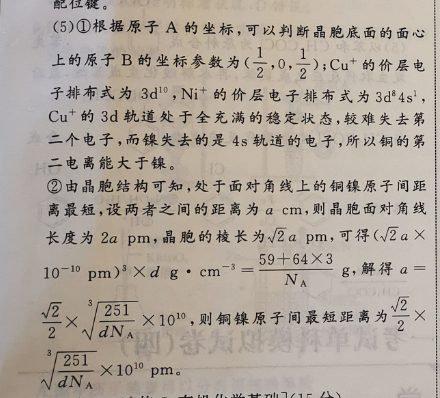 配位键。
(5)①根据原子 A 的坐标,可以判断晶胞底面的面心
上的原子 B 的坐标参数为(1/2,0,1/2);Cu⁺ 的价层电
子排布式为 3d¹⁰,Ni⁺ 的价层电子排布式为 3d⁸4s¹,
Cu⁺ 的 3d 轨道处于全充满的稳定状态,较难失去第
二个电子,而镍失去的是 4s 轨道的电子,所以铜的第
二电离能大于镍。
②由晶胞结构可知,处于面对角线上的铜镍原子间距
离最短,设两者之间的距离为 a cm,则晶胞面对角线
长度为 2a pm,晶胞的棱长为√2 a pm,可得(√2 a×
10⁻¹⁰ pm)³×d g·cm⁻³=(59+64×3)/N_A g,解得 a=
√2/2×∛(251/dN_A)×10¹⁰,则铜镍原子间最短距离为√2/2×
∛(251/dN_A)×10¹⁰ pm。